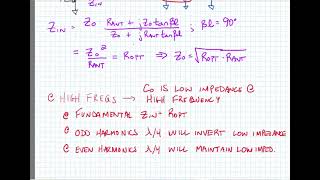 ZIN
ZIN = Z0 RANT + jZ0 tanβl / Z0 + jRANT tanβl ; βl = 90°
= Z0² / RANT = ROPT ⇒ Z0 = √ROPT · RANT
@ HIGH FREQS → C0 IS LOW IMPEDANCE @ HIGH FREQUENCY
@ FUNDAMENTAL ZIN = ROPT
@ ODD HARMONICS λ/4 WILL INVERT LOW IMPEDANCE
@ EVEN HARMONICS λ/4 WILL MAINTAIN LOW IMPED.